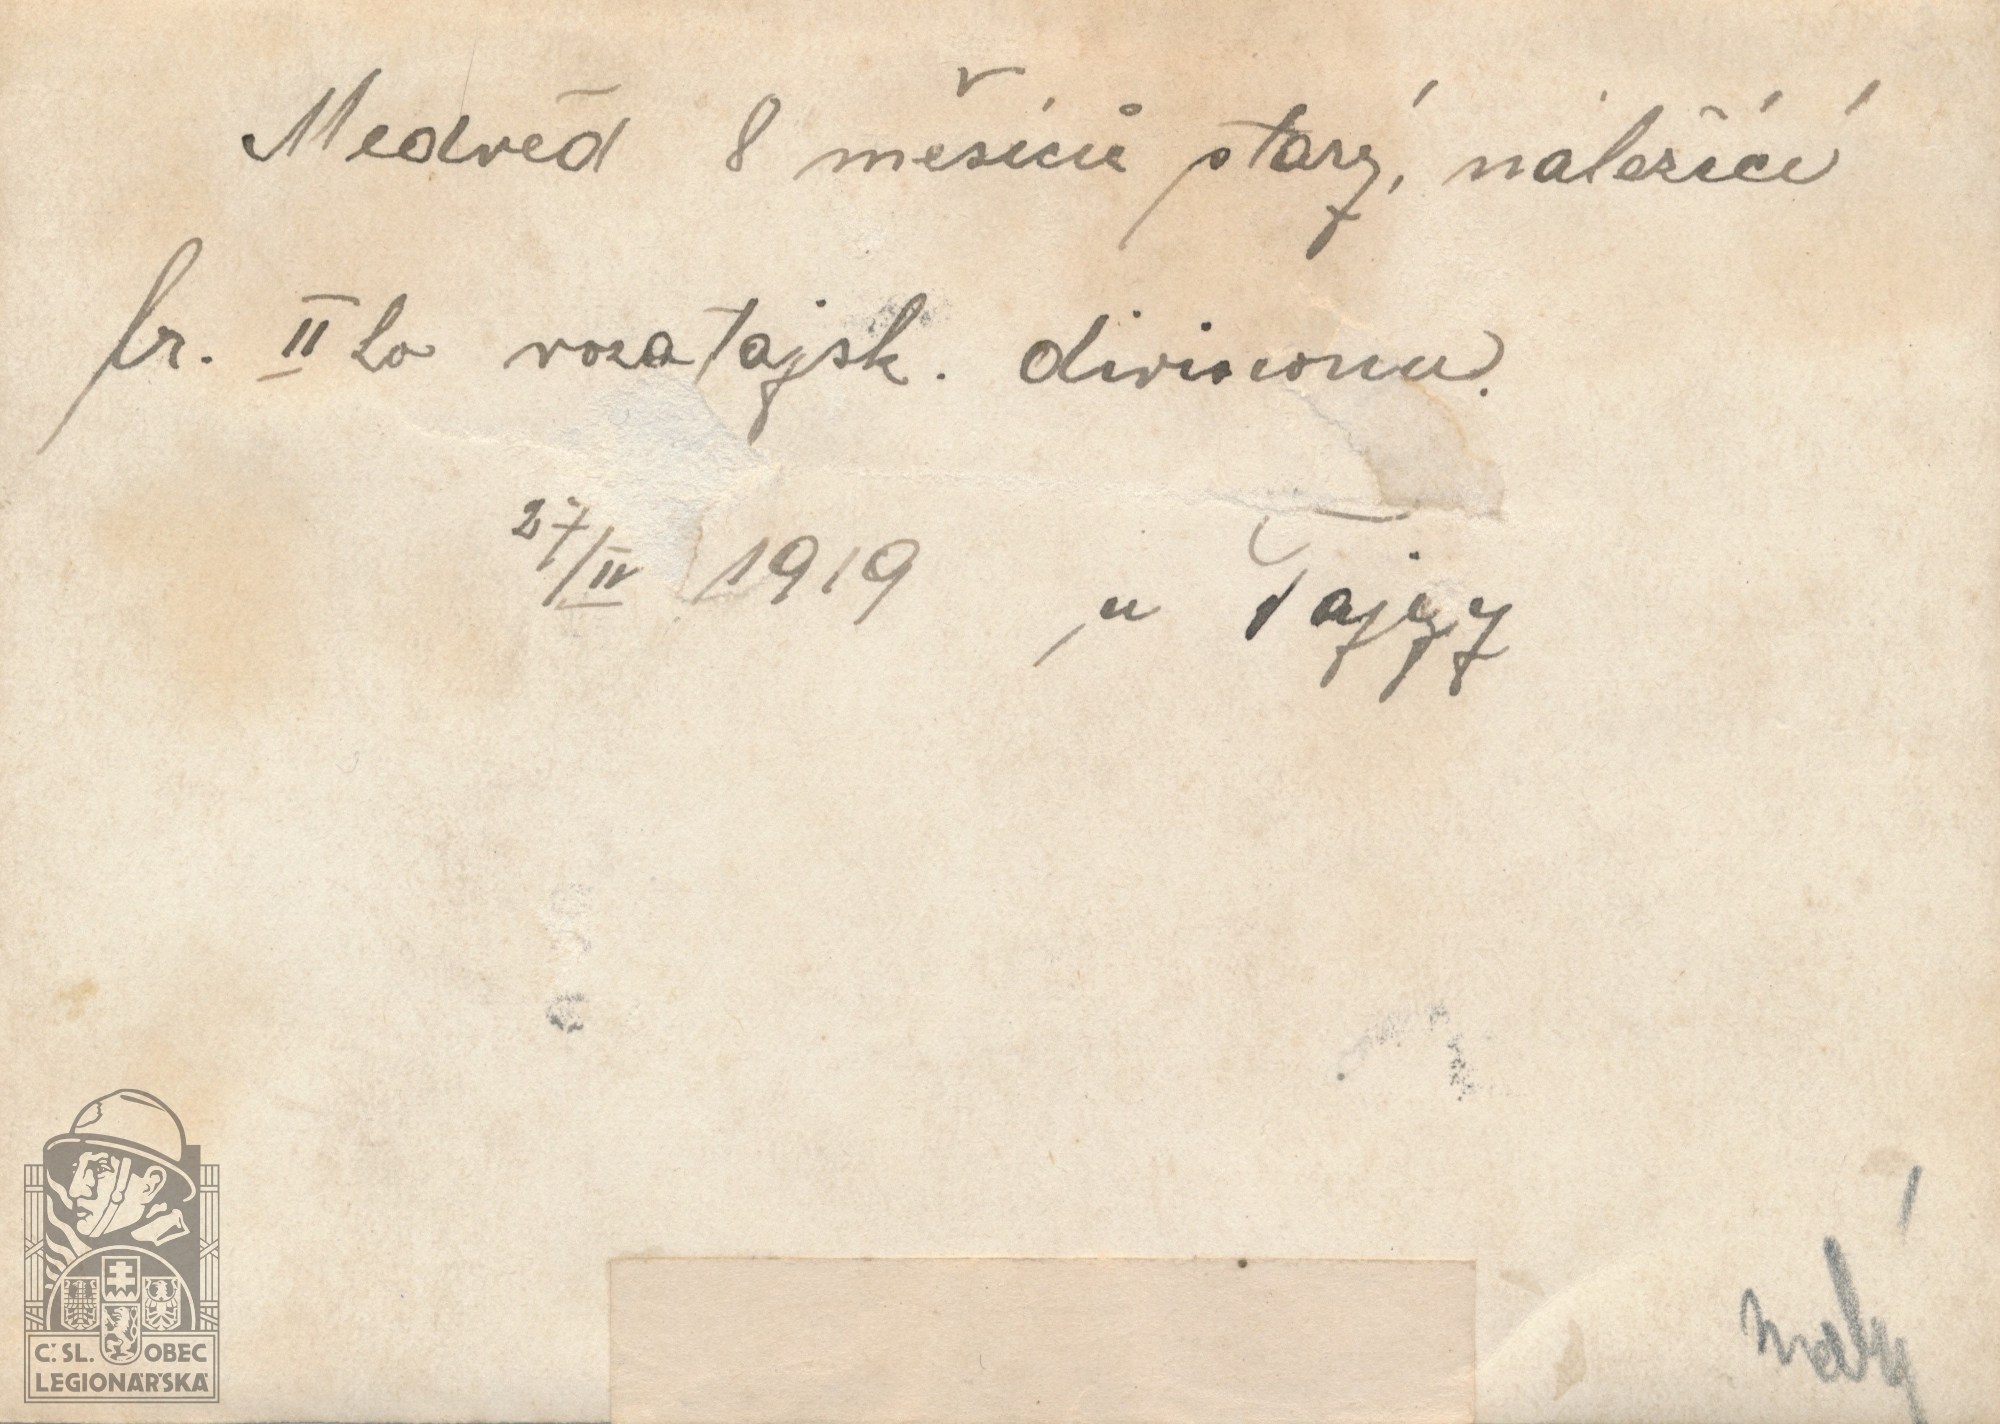 Medvěd 8 měsíců starý, náležící
br. II ho vozatajsk. divisionu.
27/IV 1919 u Tajgy
malý
Č.SL. OBEC
LEGIONÁŘSKÁ